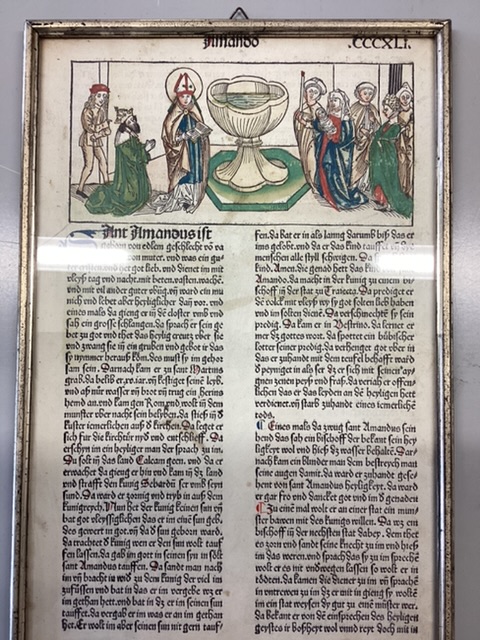 Amando
.CCCXLI.
Sant Amandus ist
geborn von edlem geschlecht võ va
ter vñ von muter. vnd was ein gu
het got lieb. vnd dienet im mit
vleyß tag vnd nacht. mit beten. vasten. wachẽ.
vnd mit vil ander guter übũg. vñ ward ein mü
nich vnd lebet aber heyliglicher dañ vor. vnd
eines mals da gieng er in dẽ closter vmb vnd
sah ein grosse schlangen. da sprach er sein ge
bet zu got vnd thet das heylig creutz über sie
vnd zwang sie in ein gruben vnd gebot ir das
sy nymmer herauß köm. des must sy im gehor
sam sein. Darnach kam er zu sant Martins
grab. da belib er .xv. iar. vñ kestiget seinen leyb.
vnd aß nür wasser vñ brot vñ trug ein herins
hemd an. vnd kam gen Rom. vnd wolt in dem
münster über nacht sein beliben. da stieß yn ð
küster iemerlichen auß ð kirchen. Da leget er
sich für die kirchtür nyd vnd entschlieff. Da
erschyn im ein heyliger man der sprach zu im.
Du solt in das land Calcam geen. vnd da er
erwachet da gieng er hin vnd kam in dz land
vnd strafft den künig Schardũ ser vmb seyn
sund. Da ward er zornig vnd tryb in auß dem
künigreych. Nun het der künig keinen sun vñ
bat got vleyssiglichen das er im einẽ sun geb.
des geweret in got. vñ da ð sun geborn ward.
da trachtet ð künig wen er den sun wolt tauf
fen lassen. da gab im got in seinen syn in sölt
sant Amandus tauffen. Da sandt man nach
im vñ bracht in vnd zu dem künig der viel im
zufüssen vnd bat in das er im vergeb wz er
im gethan hett. vnd bat in dz er im seinen sun
tauffet. da vergab er im was er an im gethan
het. Er wolt im aber seinen sun nit gern tauf/
fen. da bat er in als lanng darumb biß das er
ims gelobt. vnd da er das kind tauffet
menschen alle styll schwigen. Da
kind. Amen. die genad hett das kind
Amando. da macht in der künig zu einem bi-
schoff in der stat zu Traiecta. Da prediget er
dẽ volck mit vleyß wy sy got solten lieb haben
vnd im solten dienẽ. Da verschmecht sy sein
predig. Da kam er in Vestrino. da lernet er
mer dz gottes wort. da spottet ein bübischer
ketter seiner predig. Da verhenget got über in
das er zuhandt mit dem teufel behafft ward
ð peyniget in als ser dz er sich mit seinen ay-
gnen zenen peyß vnd fraß. da veriah er offen-
lichen das er das leyden an dẽ heyligen hett
verdienet. vñ starb zuhandt eines iemerlichẽ
tods.
Eines mals da zwug sant Amandus sein
hend das sah ein bischoff der bekant sein hey
ligkeyt wol vnd hieß dz wasser behaltẽ. Dar-
nach kam ein blinder man dem bestreych man
seine augen damit. da ward er zuhandt gese-
hent von sant Amandus heyligkeyt. da ward
er gar fro vnd dancket got vnd im ð genaden
Zu einẽ mal wolt er an einer stat ein mun/
ster bawen mit des künigs willen. Da wz ein
bischoff in der nechsten stat dabey. dem thet
es zorn vnd sande seine knecht zu im vnd hieß
im das weren. vnd sprach das sy zu im sprechẽ
wolt er es nit vndwegen lassen so wolt er in
tödten. da kamen die diener zu im vñ sprachẽ
in vntrewen zu im dz er mit in gieng sy woltẽ
im ein stat weysen dy gut zu einẽ münster wer.
da bekant er von dẽ einsprechen des heyligen
geystes ir boßheyt wol vnnd rept doch mit in